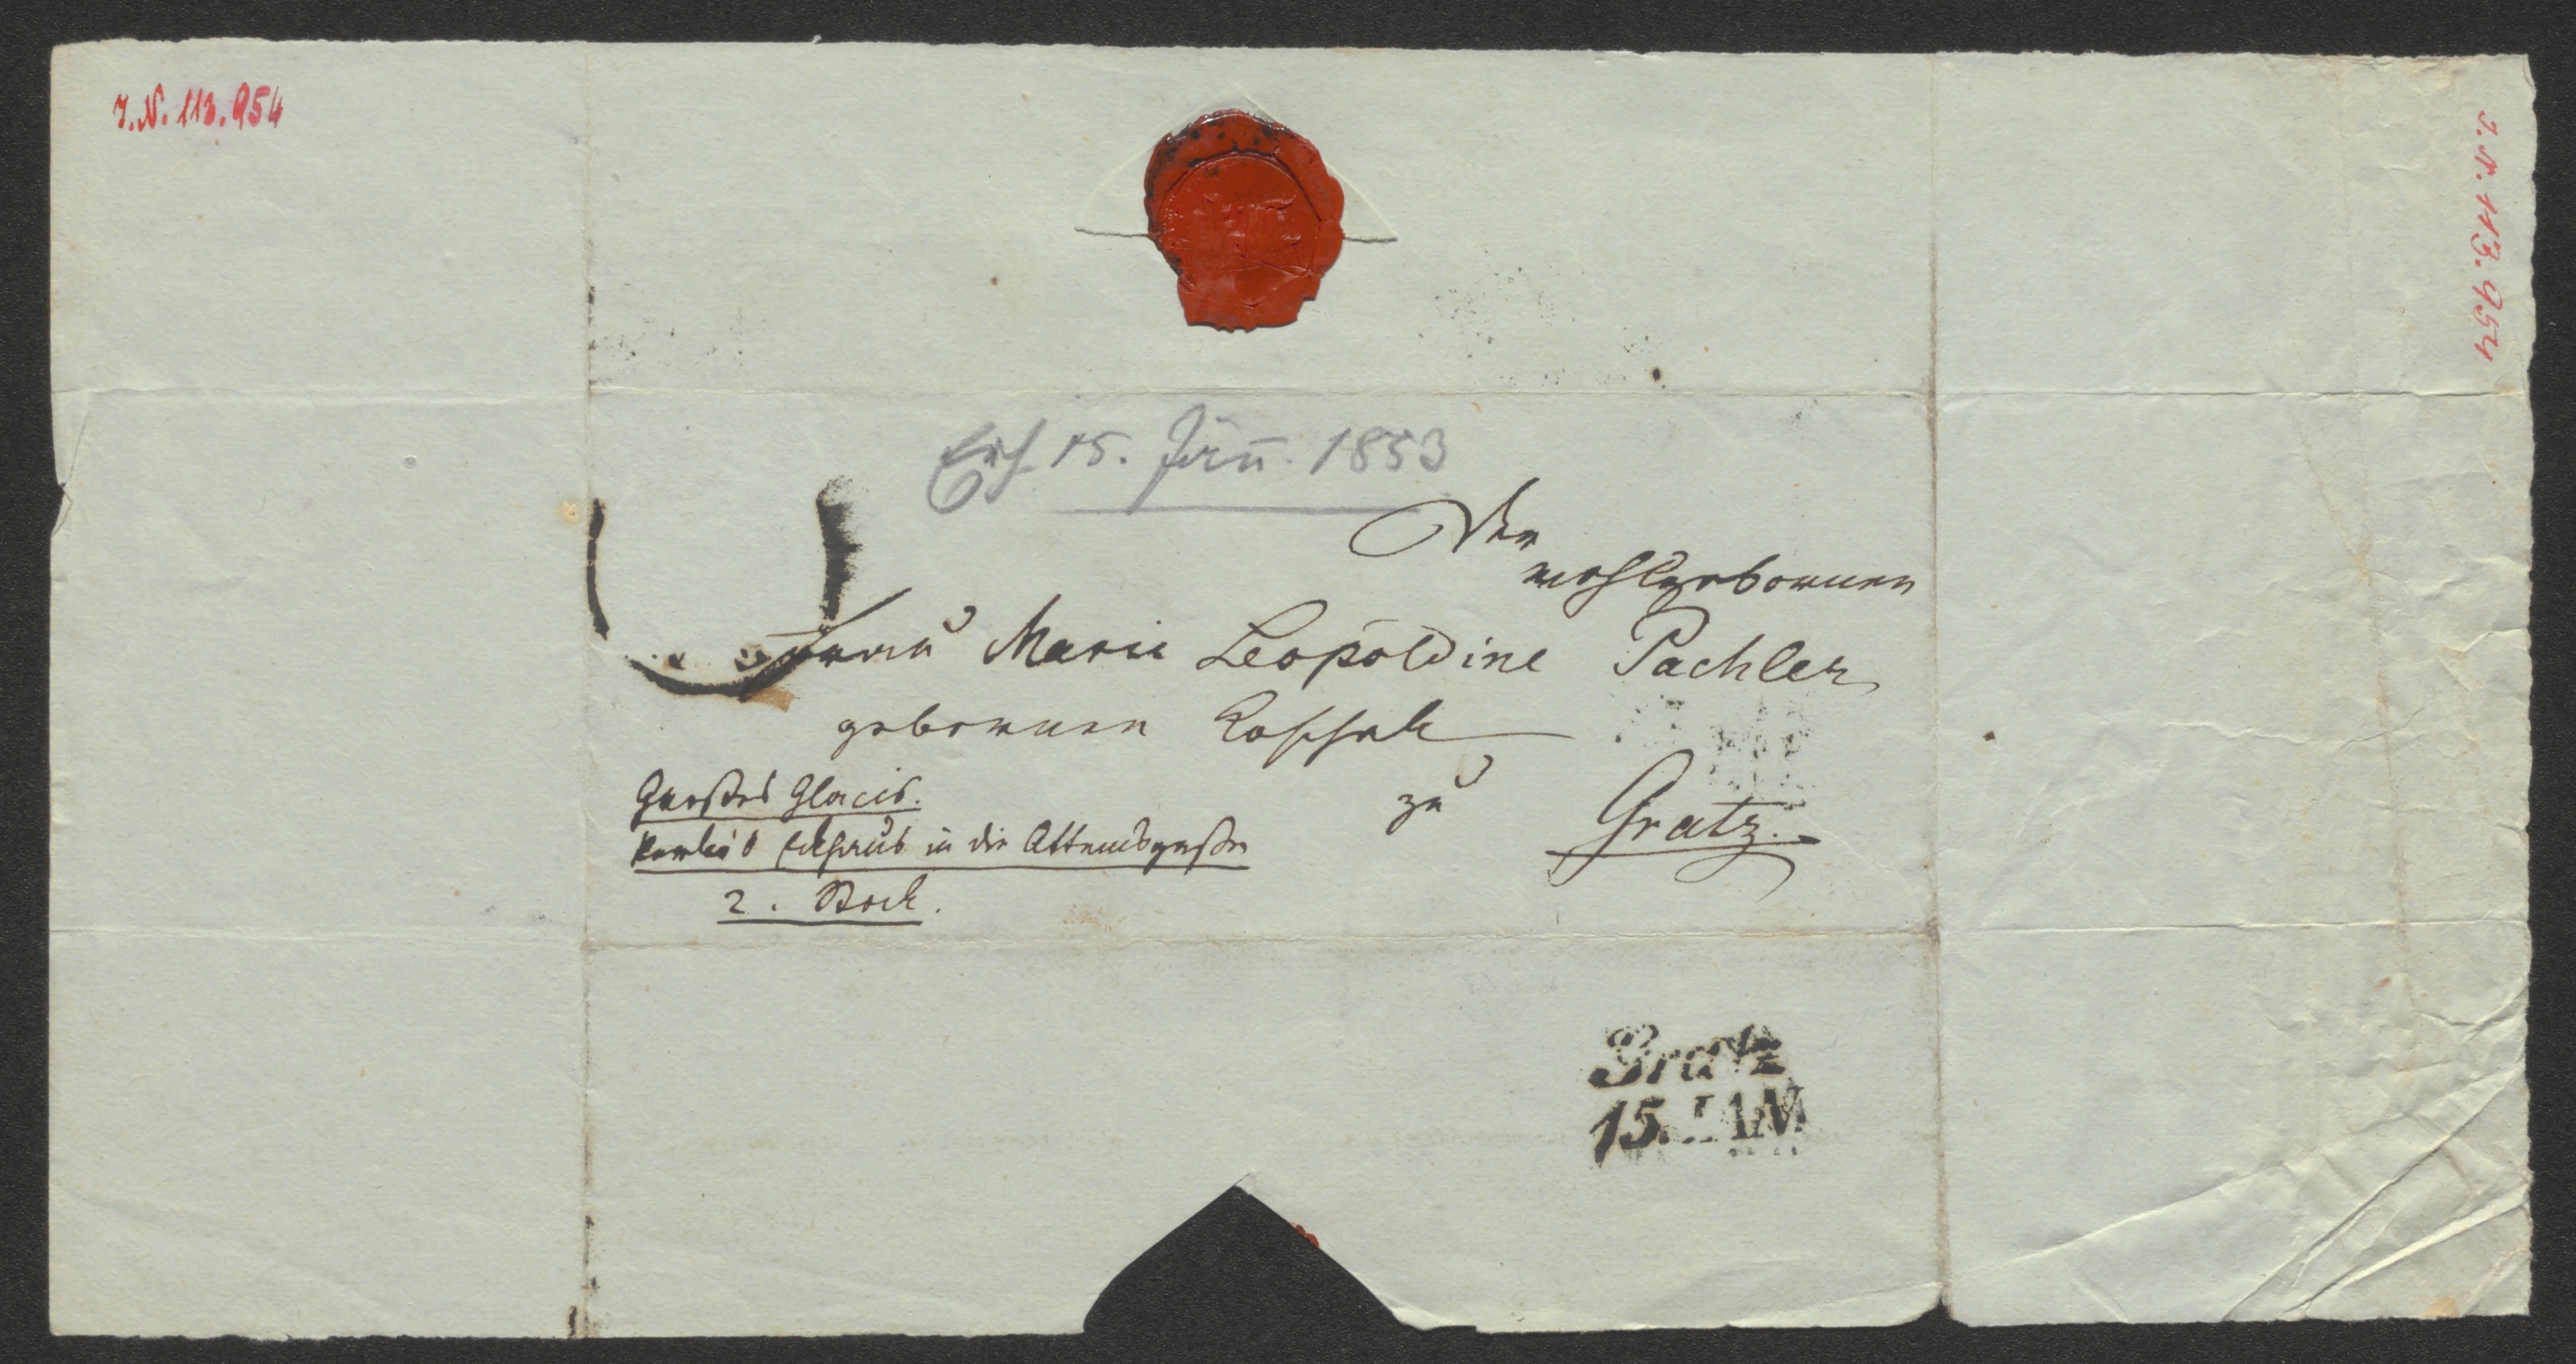 I.N. 113.954
I.N. 113.954
Erh 15. Jän̄. 1853
Der
wohlgebornen
Frau Marie Leopoldine Pachler
gebornen Koschak
zu Gratz.
Großes Glacis.
Eckhaus in die Attemsgasse
2. Stock.
Gratz
15. JAN